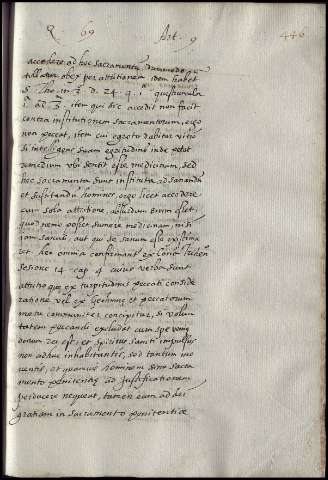 Q 69 Art. 9 446
accedere ad hoc sacramentum
tallatur obex per attritionem idem habet
S. Tho. in 4 d. 24 q. 1 questiuncula
1. ad 3. item qui hic accedit non facit
contra institutionem sacramentorum, ergo
non peccat, item cui egroto dabitur vitio
si intelligens suam egritudinem inde petat
remedium ubi sentit esse medicinam, sed
hec sacramenta sunt instituta ad sanandum
et iustitandum homines, ergo licet accedere
cum sola attritione, absurdum enim esset,
quod nemo posset sumere medicinam, nisi
iam sanus, aut qui se sanum esse existima
ret hec omnia confirmant ex Concilio Triden
sesione 14 cap 4 cuius verba sunt
attritio que ex turpitudinis peccati conside
ratione vel ex Gehenne et peccatorum
metu communiter concipitur, si volun
tatem peccandi excludat cum spe venie
donum dei esse, et spiritus sancti impulsus
non adhuc inhabitantis, sed tantum mo
ventis, et quamvis hominem sine sacra
mento penitentie ad Justificationem
perducere nequeat, tamen eum ad dei
gratiam in sacramento penitentie